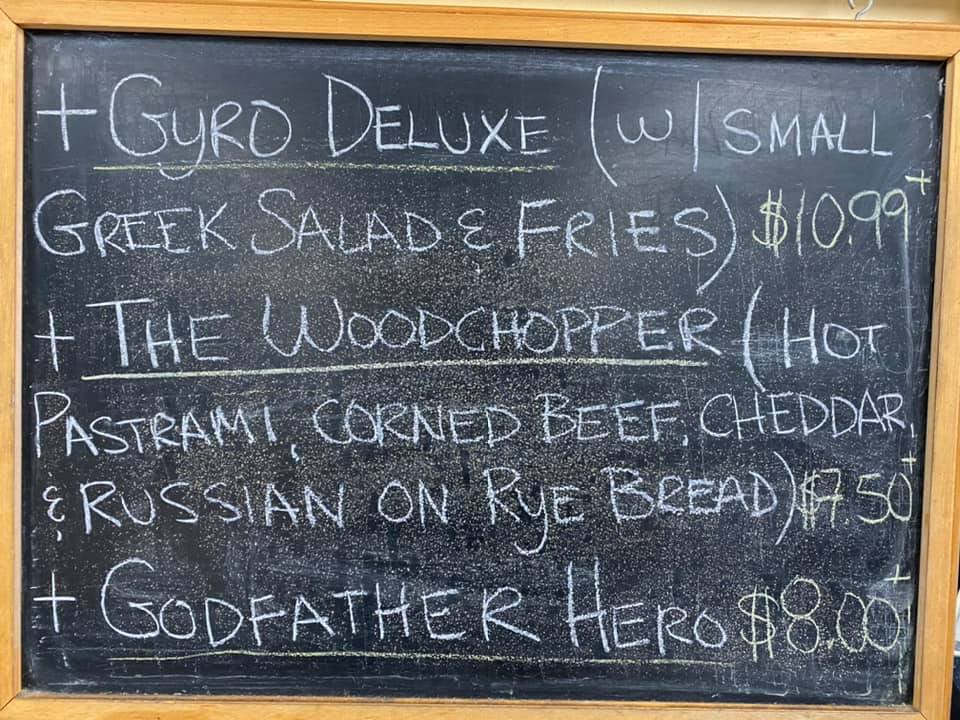 + GYRO DELUXE (W/ SMALL
GREEK SALAD & FRIES) $10.99+
+ THE WOODCHOPPER (HOT
PASTRAMI, CORNED BEEF, CHEDDAR,
& RUSSIAN ON RYE BREAD) $7.50+
+ GODFATHER HERO $8.00+